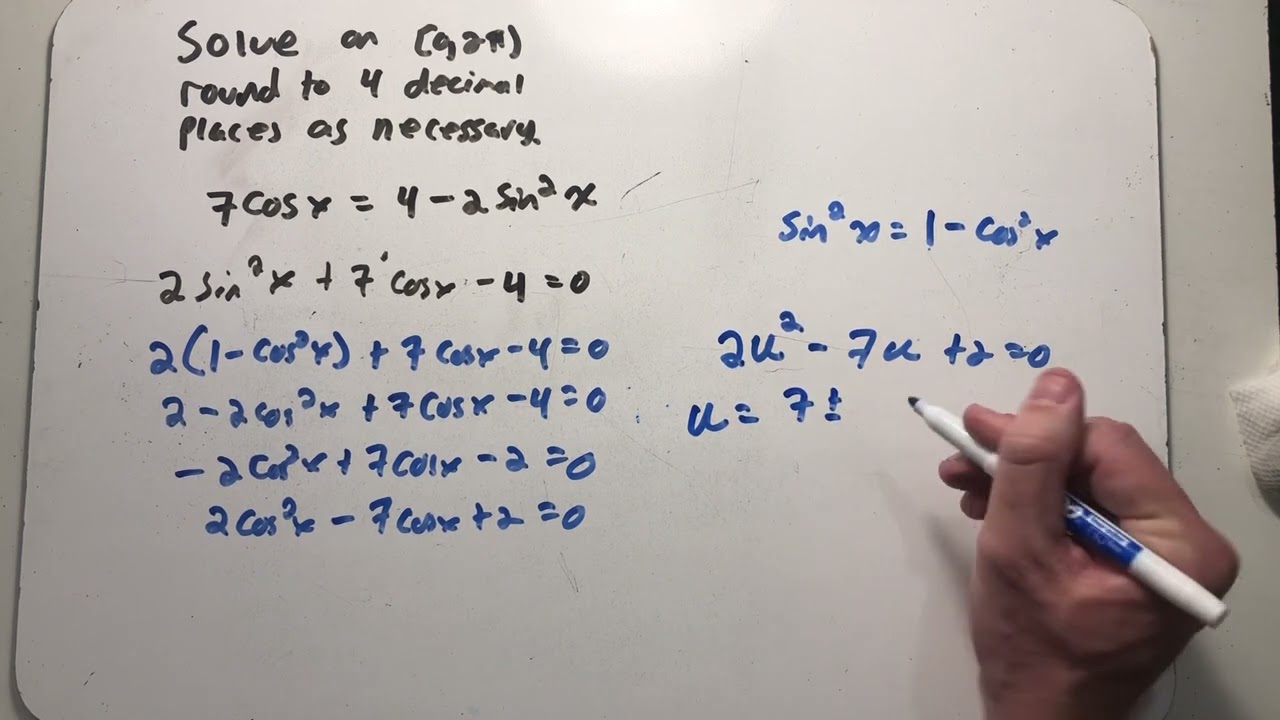 Solve on [0,2π)
round to 4 decimal
places as necessary.
7cosx = 4 - 2 sin²x
2 sin²x + 7 cosx - 4 = 0
2(1 - cos²x) + 7cosx - 4 = 0
2 - 2cos²x + 7cosx - 4 = 0
- 2cos²x + 7cosx - 2 = 0
2cos²x - 7cosx + 2 = 0
sin²x = 1 - cos²x
2u² - 7u + 2 = 0
u = 7 ±